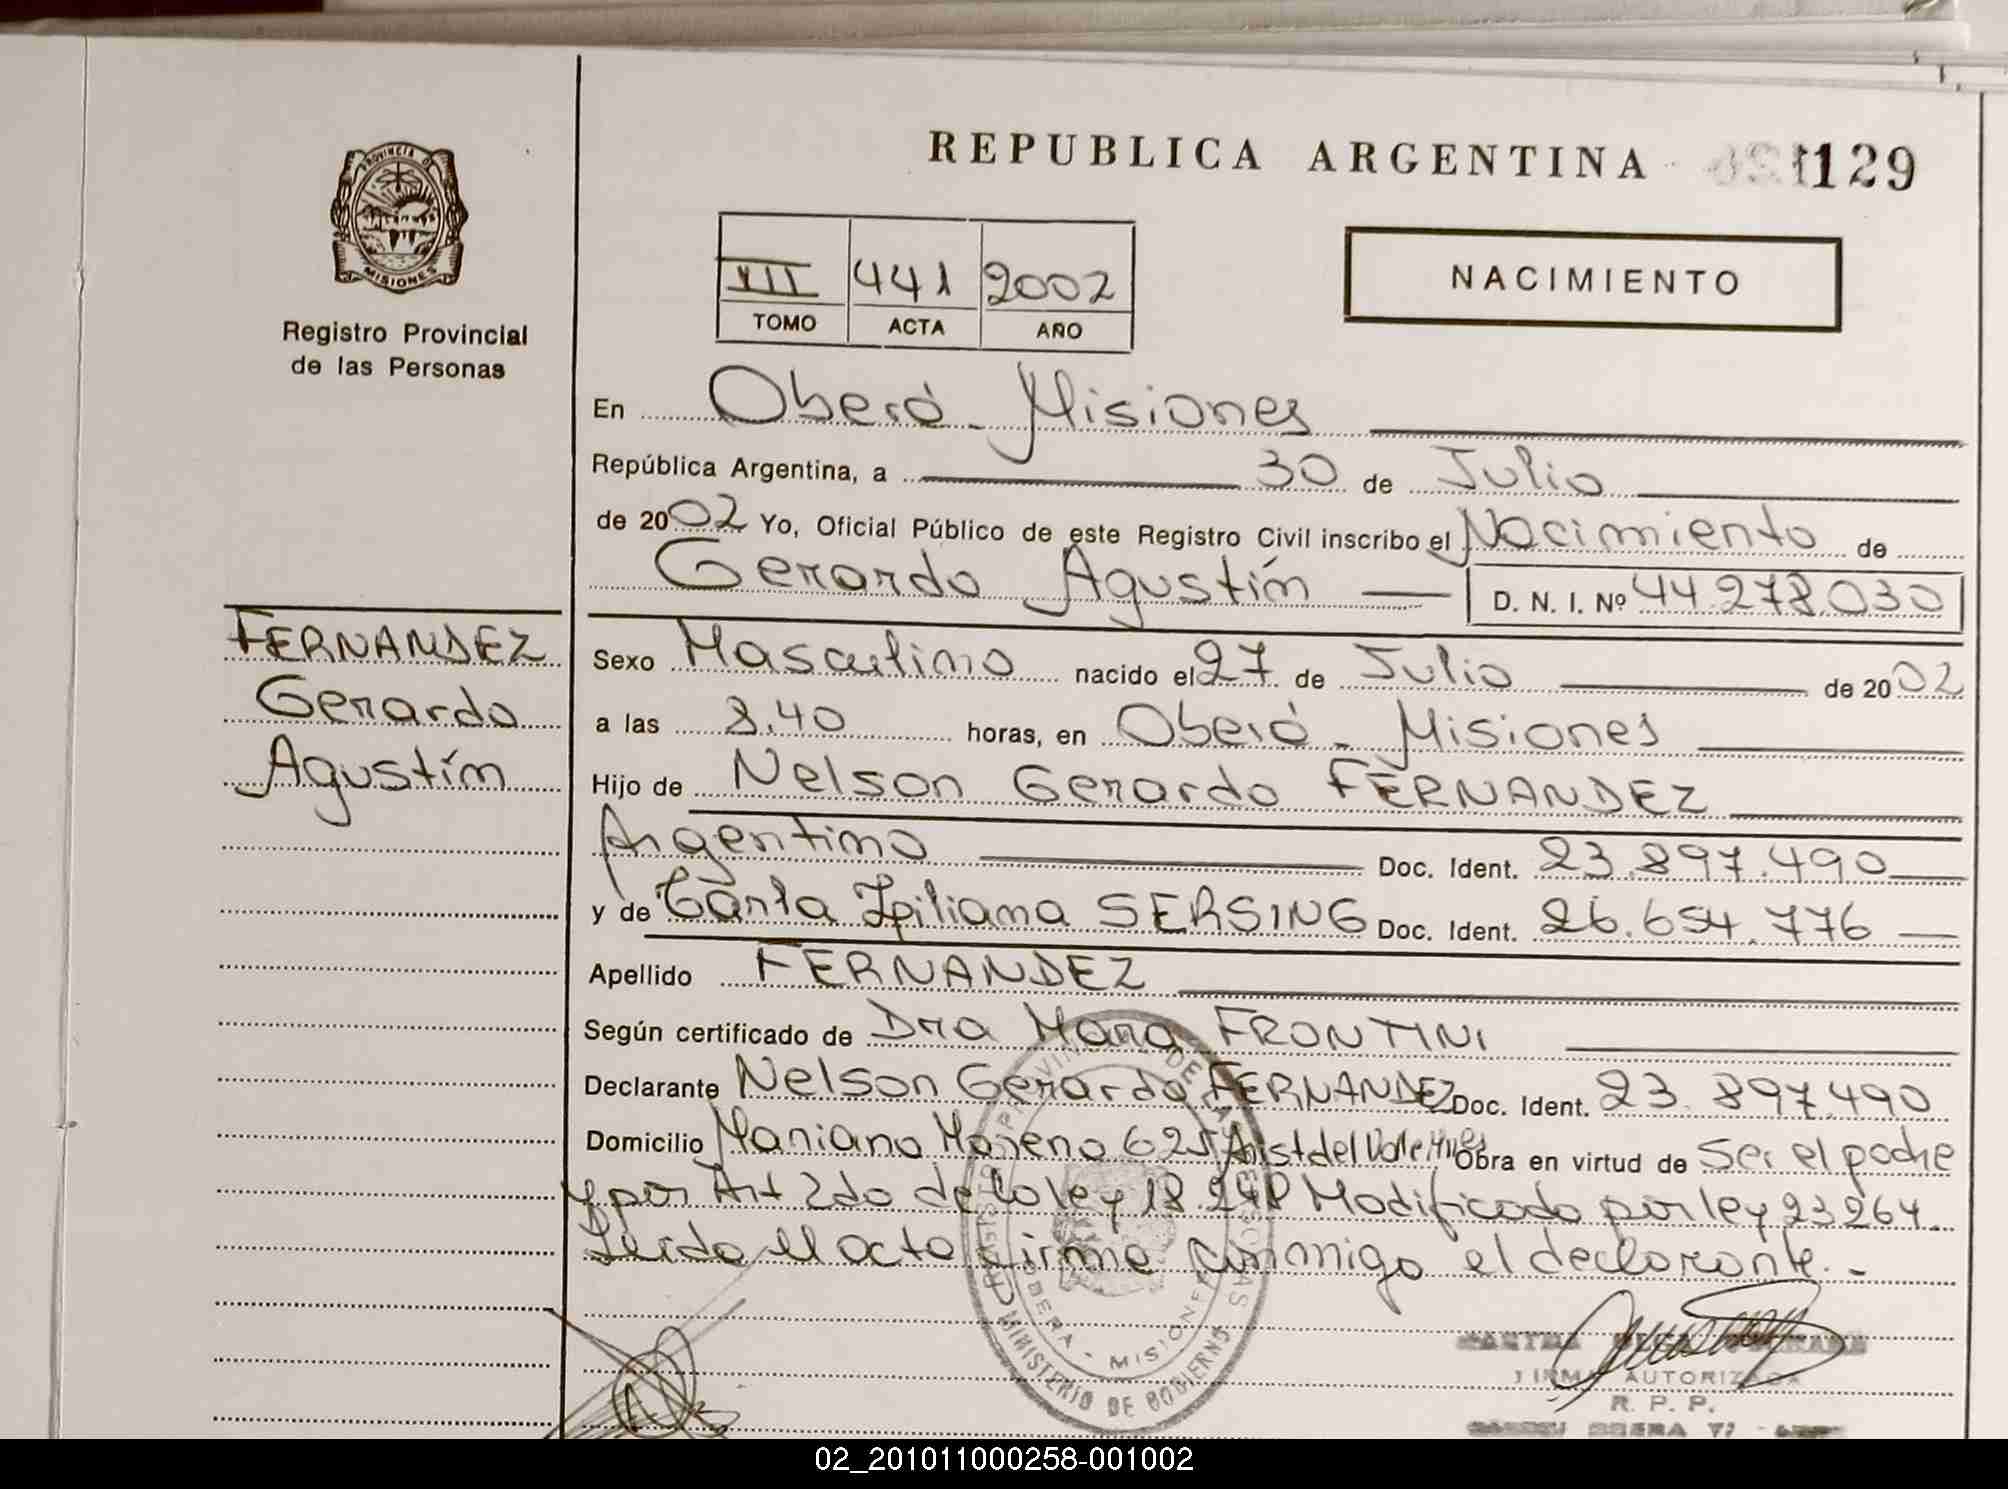 REPUBLICA ARGENTINA 129
PROVINCIA DE
MISIONES
Registro Provincial
de las Personas
VII 441 2002
TOMO ACTA AÑO
NACIMIENTO
En Oberá - Misiones
República Argentina, a 30 de Julio
de 2002 Yo, Oficial Público de este Registro Civil inscribo el Nacimiento de
Gerardo Agustín D. N. I. Nº 44.278.030
FERNANDEZ
Gerardo
Agustín
Sexo Masculino nacido el 27 de Julio de 2002
a las 8.40 horas, en Oberá - Misiones
Hijo de Nelson Gerardo FERNANDEZ
Argentino Doc. Ident. 23.897.490
y de Carla SERSING Doc. Ident. 26.654.776
Apellido FERNANDEZ
Según certificado de Dra FRONTINI
Declarante Nelson Gerardo FERNANDEZ Doc. Ident. 23.897.490
Domicilio Mariano Moreno 625 Arist del Valle Mnes Obra en virtud de Ser el padre
y por Art 2do de la ley 18.248 Modificado por ley 23264.
Leida el acta firma conmigo el declarante. -
OBERA - MISIONES
MINISTERIO DE GOBIERNO
FIRMA AUTORIZADA
R. P. P.
02_201011000258-001002